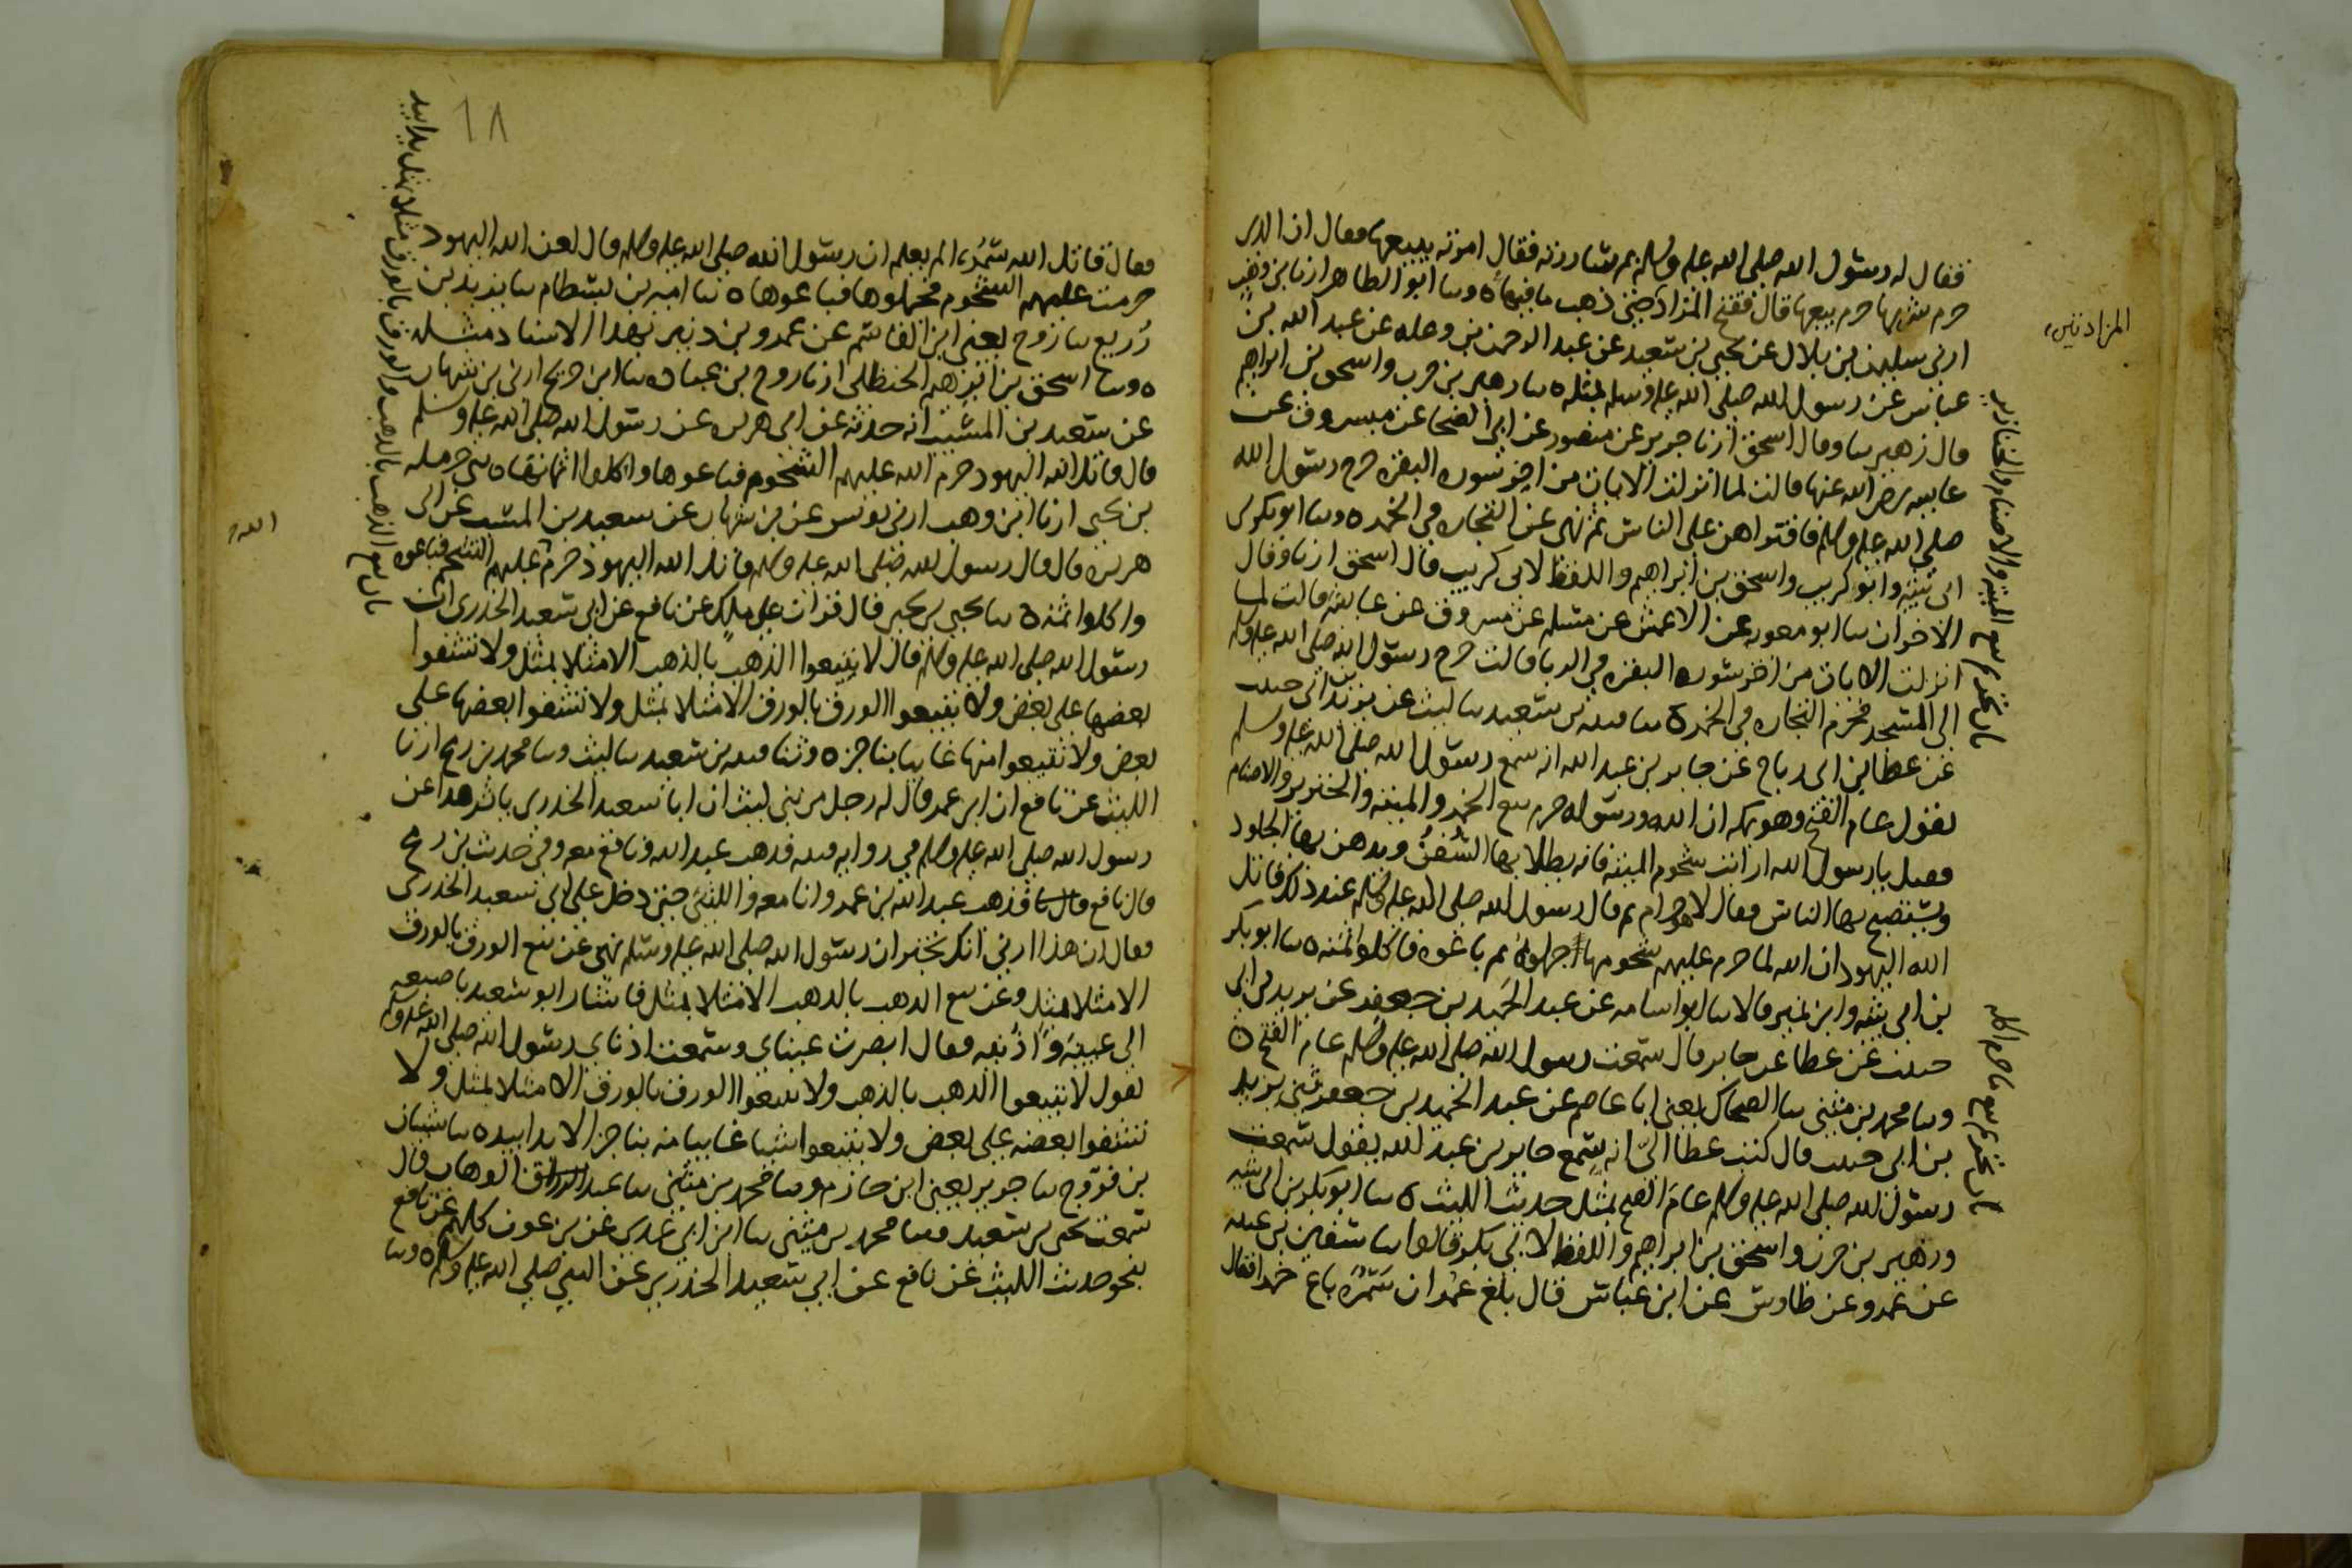 فقال له رسول الله صلى الله عليه وسلم بم ساررته فقال امرته ببيعها فقال ان الذى
حرم شربها حرم بيعها قال ففتح المزاد حتى ذهب ما فيها ه وسا ابو الطاهر ارنا بن وهب
ارنى سليمن بن بلال عن يحيى بن سعيد عن عبد الرحمن بن وعله عن عبد الله بن
عباس عن رسول الله صلى الله عليه وسلم بمثله ه سا زهير بن حرب واسحق بن ابراهيم
قال زهير سا وقال اسحق ارنا جرير عن منصور عن ابى الضحا عن مسروق عن
عايشه رضى الله عنها قالت لما انزلت الايات من اخر سورة البقره خرج رسول الله
صلى الله عليه وسلم فاقتراهن على الناس ثم نهى عن التجاره فى الخمر ه وسا ابو بكر بن
ابى شيبه وابو كريب واسحق بن ابراهيم واللفظ لابى كريب قال اسحق ارنا وقال
الاخران سا ابو معويه عن الاعمش عن مسلم عن مسروق عن عايشه قالت لما
انزلت الايات من اخر سورة البقره فى الربا قالت خرج رسول الله صلى الله عليه وسلم
الى المسجد فحرم التجاره فى الخمر ه سا قتيبه بن سعيد سا ليث عن يزيد بن ابى حبيب
عن عطا بن ابى رباح عن جابر بن عبد الله انه سمع رسول الله صلى الله عليه وسلم
يقول عام الفتح وهو بمكه ان الله ورسوله حرم بيع الخمر والميته والخنزير والاصنام
فقيل يا رسول الله ارايت شحوم الميته فانه يطلا بها السُفنُ ويدهن بها الجلود
ويستصبح بها الناس فقال لا هو حرام ثم قال رسول الله صلى الله عليه وسلم عند ذلك قاتل
الله اليهود ان الله لما حرم عليهم شحومها اجملوهُ ثم باعوه فاكلوا ثمنه ه سا ابو بكر
بن ابى شيبه وابن نمير قالا سا ابو اسامه عن عبد الحميد بن جعفر عن يزيد بن ابى
حبيب عن عطا عن جابر قال سمعت رسول الله صلى الله عليه وسلم عام الفتح ه
وسا محمد بن مثنى سا الضحاك يعنى ابا عاصم عن عبد الحميد بن جعفر ثنى يزيد
بن ابى حبيب قال كتب عطا الىّ انه سمع جابر بن عبد الله يقول سمعت
رسول الله صلى الله عليه وسلم عام الفتح بمثل حديث الليث ه سا ابو بكر بن ابى شيبه
وزهير بن حرب واسحق بن ابراهيم واللفظ لابى بكر قالوا سا سفين بن عيينه
عن عمرو عن طاوس عن ابن عباس قال بلغ عمر ان سَمُرَه باع خمرا فقال
المزادتين
باب تحريم بيع الميته والاصنام والخنازير
باب تحريم بيع ما حرم اكله
١٨
فقال قاتل الله سَمُرَه الم يعلم ان رسول الله صلى الله عليه وسلم قال لعن الله اليهود
حرمت عليهم الشحوم فجملوها فباعوها ه سا اميه بن بسطام سا يزيد بن
زُريع سا روح يعنى ابن القاسم عن عمرو بن دينر بهذا الاسناد مثله
ه وسا اسحق بن ابرهيم الحنظلى ارنا روح بن عباده سا ابن جريج ارنى بن شهاب
عن سعيد بن المسيب انه حدثه عن ابى هريره عن رسول الله صلى الله عليه وسلم
قال قاتل الله اليهود حرم الله عليهم الشحوم فباعوها واكلوا اثمانها ه ثنى حرمله
بن يحيى ارنا ابن وهب ارنى يونس عن بن شهاب عن سعيد بن المسيب عن ابى
هريره قال قال رسول الله صلى الله عليه وسلم قاتل الله اليهود حرم عليهم الشحم فباعوه
واكلوا ثمنه ه سا يحيى بن يحيى قال قرات على ملك عن نافع عن ابى سعيد الخدرى ان
رسول الله صلى الله عليه وسلم قال لا تبيعوا الذهب بالذهب الا مثلا بمثل ولا تشفوا
بعضها على بعض ولا تبيعوا الورق بالورق الا مثلا بمثل ولا تشفوا بعضها على
بعض ولا تبيعوا منها غايبا بناجز ه وثنا قتيبه بن سعيد سا ليث وسا محمد بن رمح ارنا
الليث عن نافع ان ابن عمر قال له رجل من بنى ليث ان ابا سعيد الخدرى ياثر هذا عن
رسول الله صلى الله عليه وسلم فى روايه قتيبه فذهب عبد الله ونافع معه وفى حديث بن رمح
قال نافع فذهب عبد الله بن عمر وانا معه والليثى حتى دخل على ابى سعيد الخدرى
فقال ان هذا ارنى انك تخبر ان رسول الله صلى الله عليه وسلم نهى عن بيع الورق بالورق
الا مثلا بمثل وعن بيع الذهب بالذهب الا مثلا بمثل فاشار ابو سعيد باصبعه
الى عينيه واذنيه فقال ابصرت عيناى وسمعت اذناى رسول الله صلى الله عليه وسلم
يقول لا تبيعوا الذهب بالذهب ولا تبيعوا الورق بالورق الا مثلا بمثل ولا
تشفوا بعضه على بعض ولا تبيعوا شيا غايبا منه بناجز الا يدا بيد ه سا شيبان
بن فروخ سا جرير يعنى ابن حازم وسا محمد بن مثنى سا عبد الوهاب قال
سمعت يحيى بن سعيد وسا محمد بن مثنى سا ابن ابى عدى عن بن عون كلهم عن نافع
بنحو حديث الليث عن نافع عن ابى سعيد الخدرى عن النبى صلى الله عليه وسلم ه وسا
باب بيع الذهب بالذهب والورق بالورق مثلا بمثل يدا بيد
الله